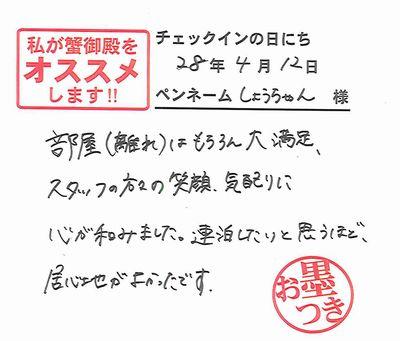 私が蟹御殿を
オススメ
します!!
チェックインの日にち
28年4月12日
ペンネーム しょうちゃん 様
部屋(離れ)はもちろん大満足、
スタッフの方々の笑顔、気配りに
心が和みました。連泊したいと思うほど、
居心地がよかったです。
お墨つき